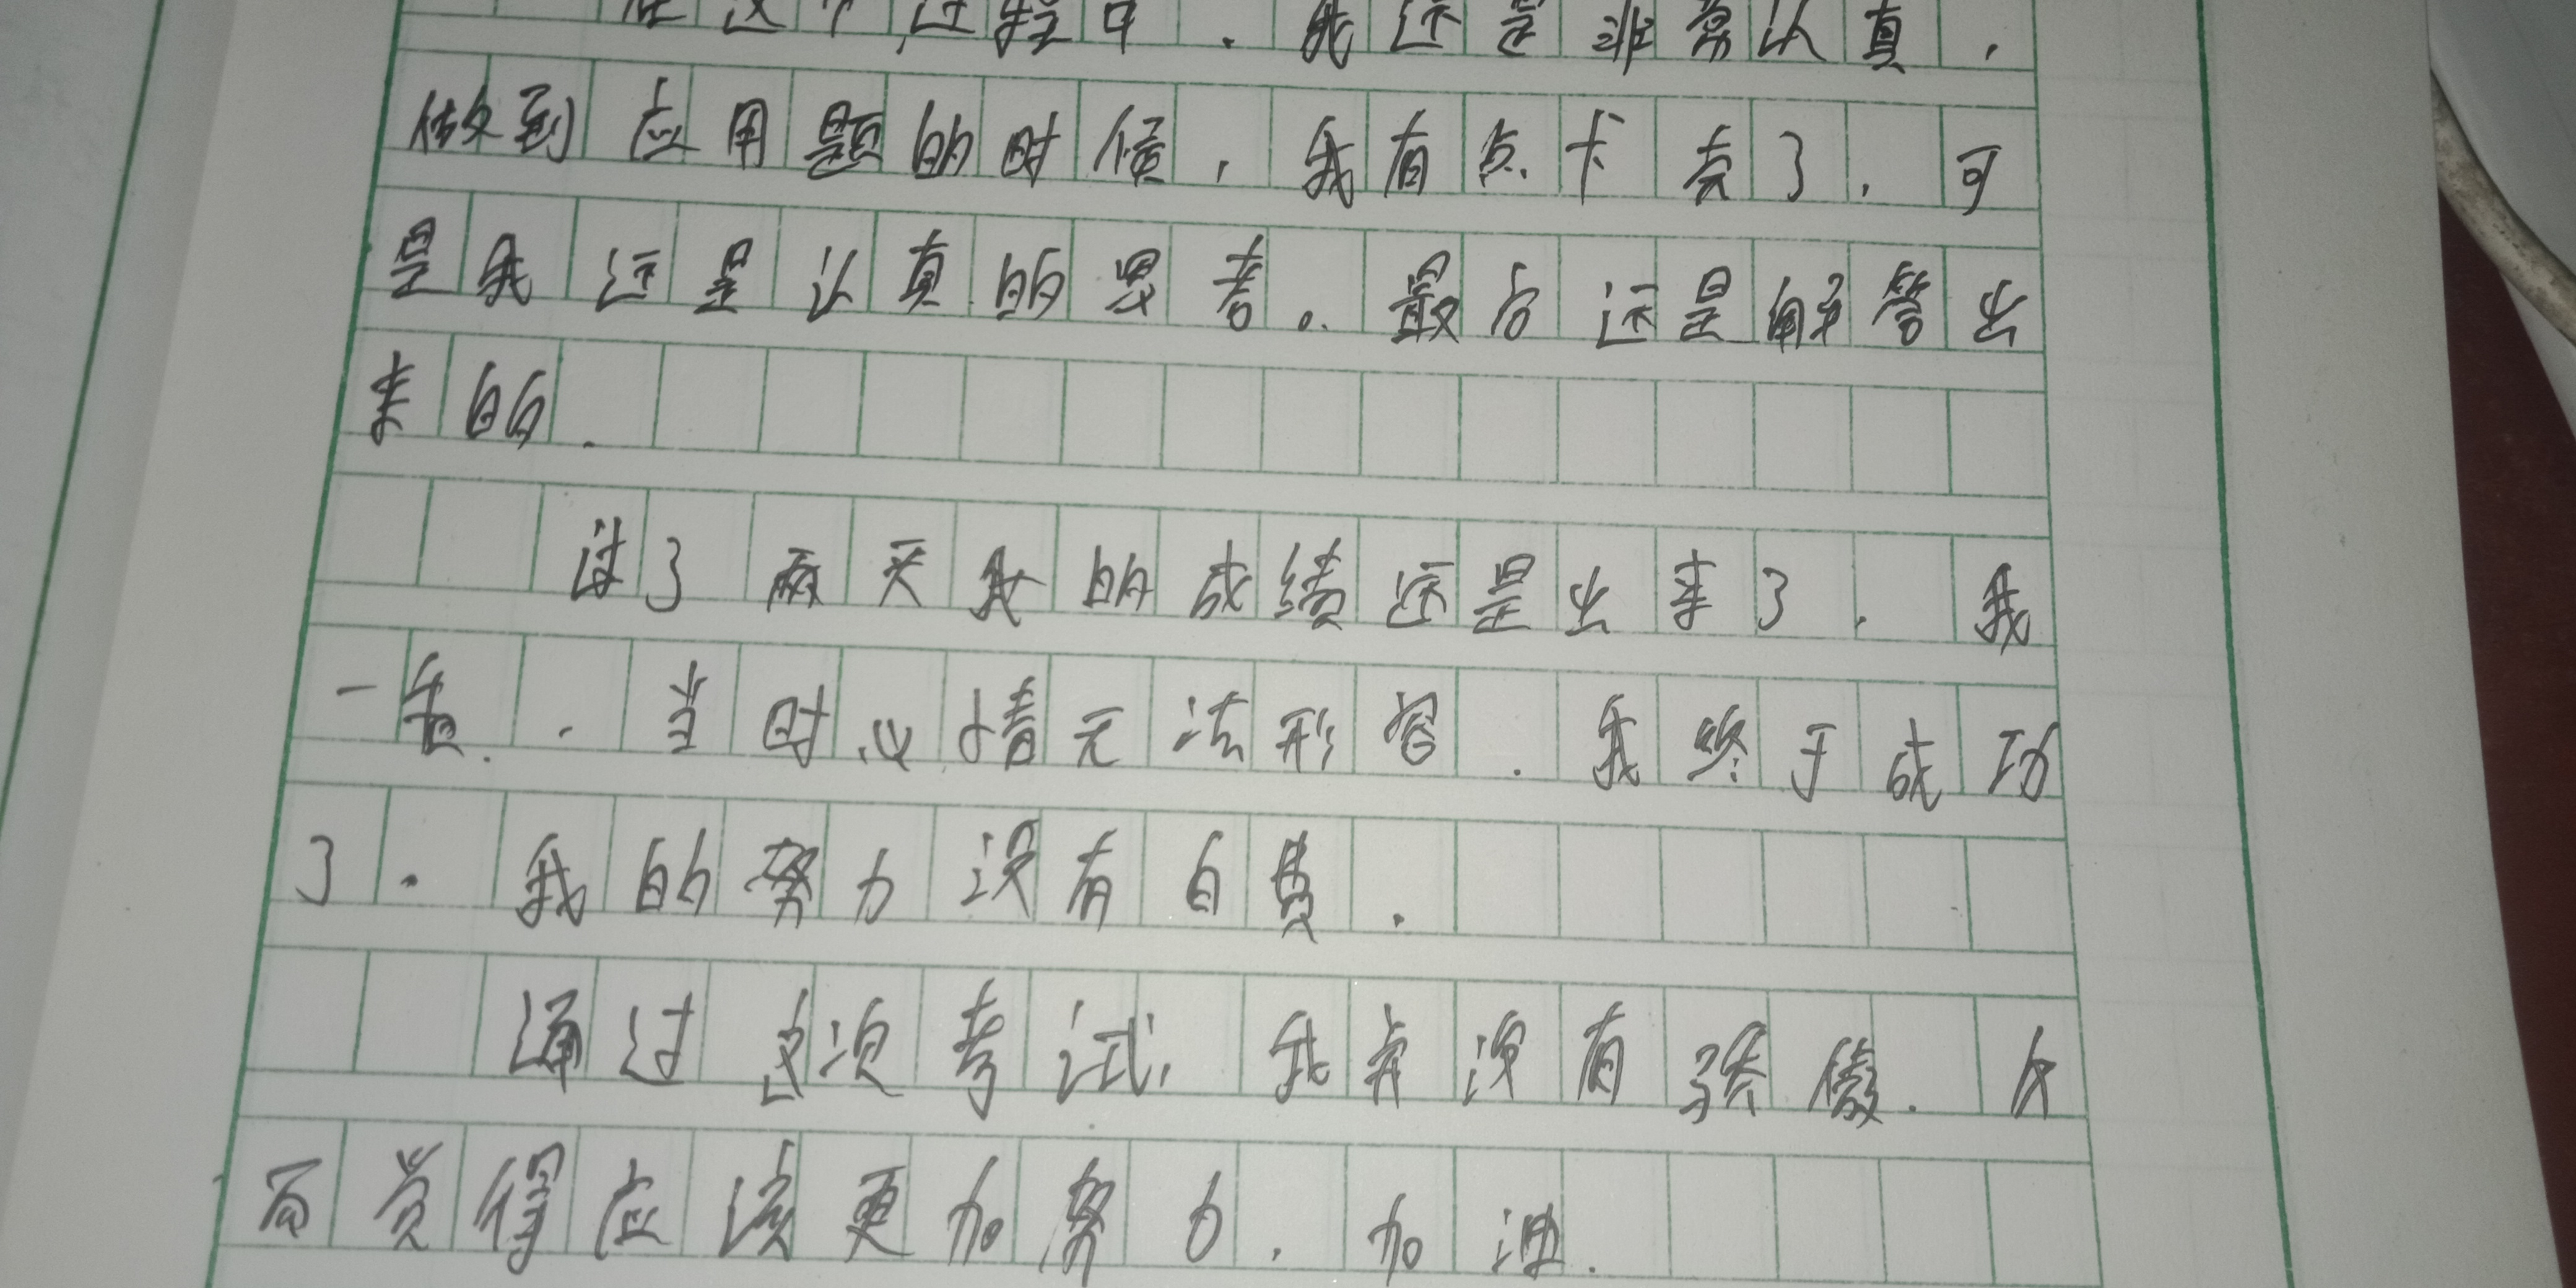 在这个过程中.我还是非常认真,
做到应用题的时候,我有点卡壳了.可
是我还是认真的思考。最后还是解答出
来的.
过了两天我的成绩还是出来了.我
一看.当时心情无法形容.我终于成功
了.我的努力没有白费.
通过这次考试,我并没有骄傲.反
而觉得应该更加努力.加油.